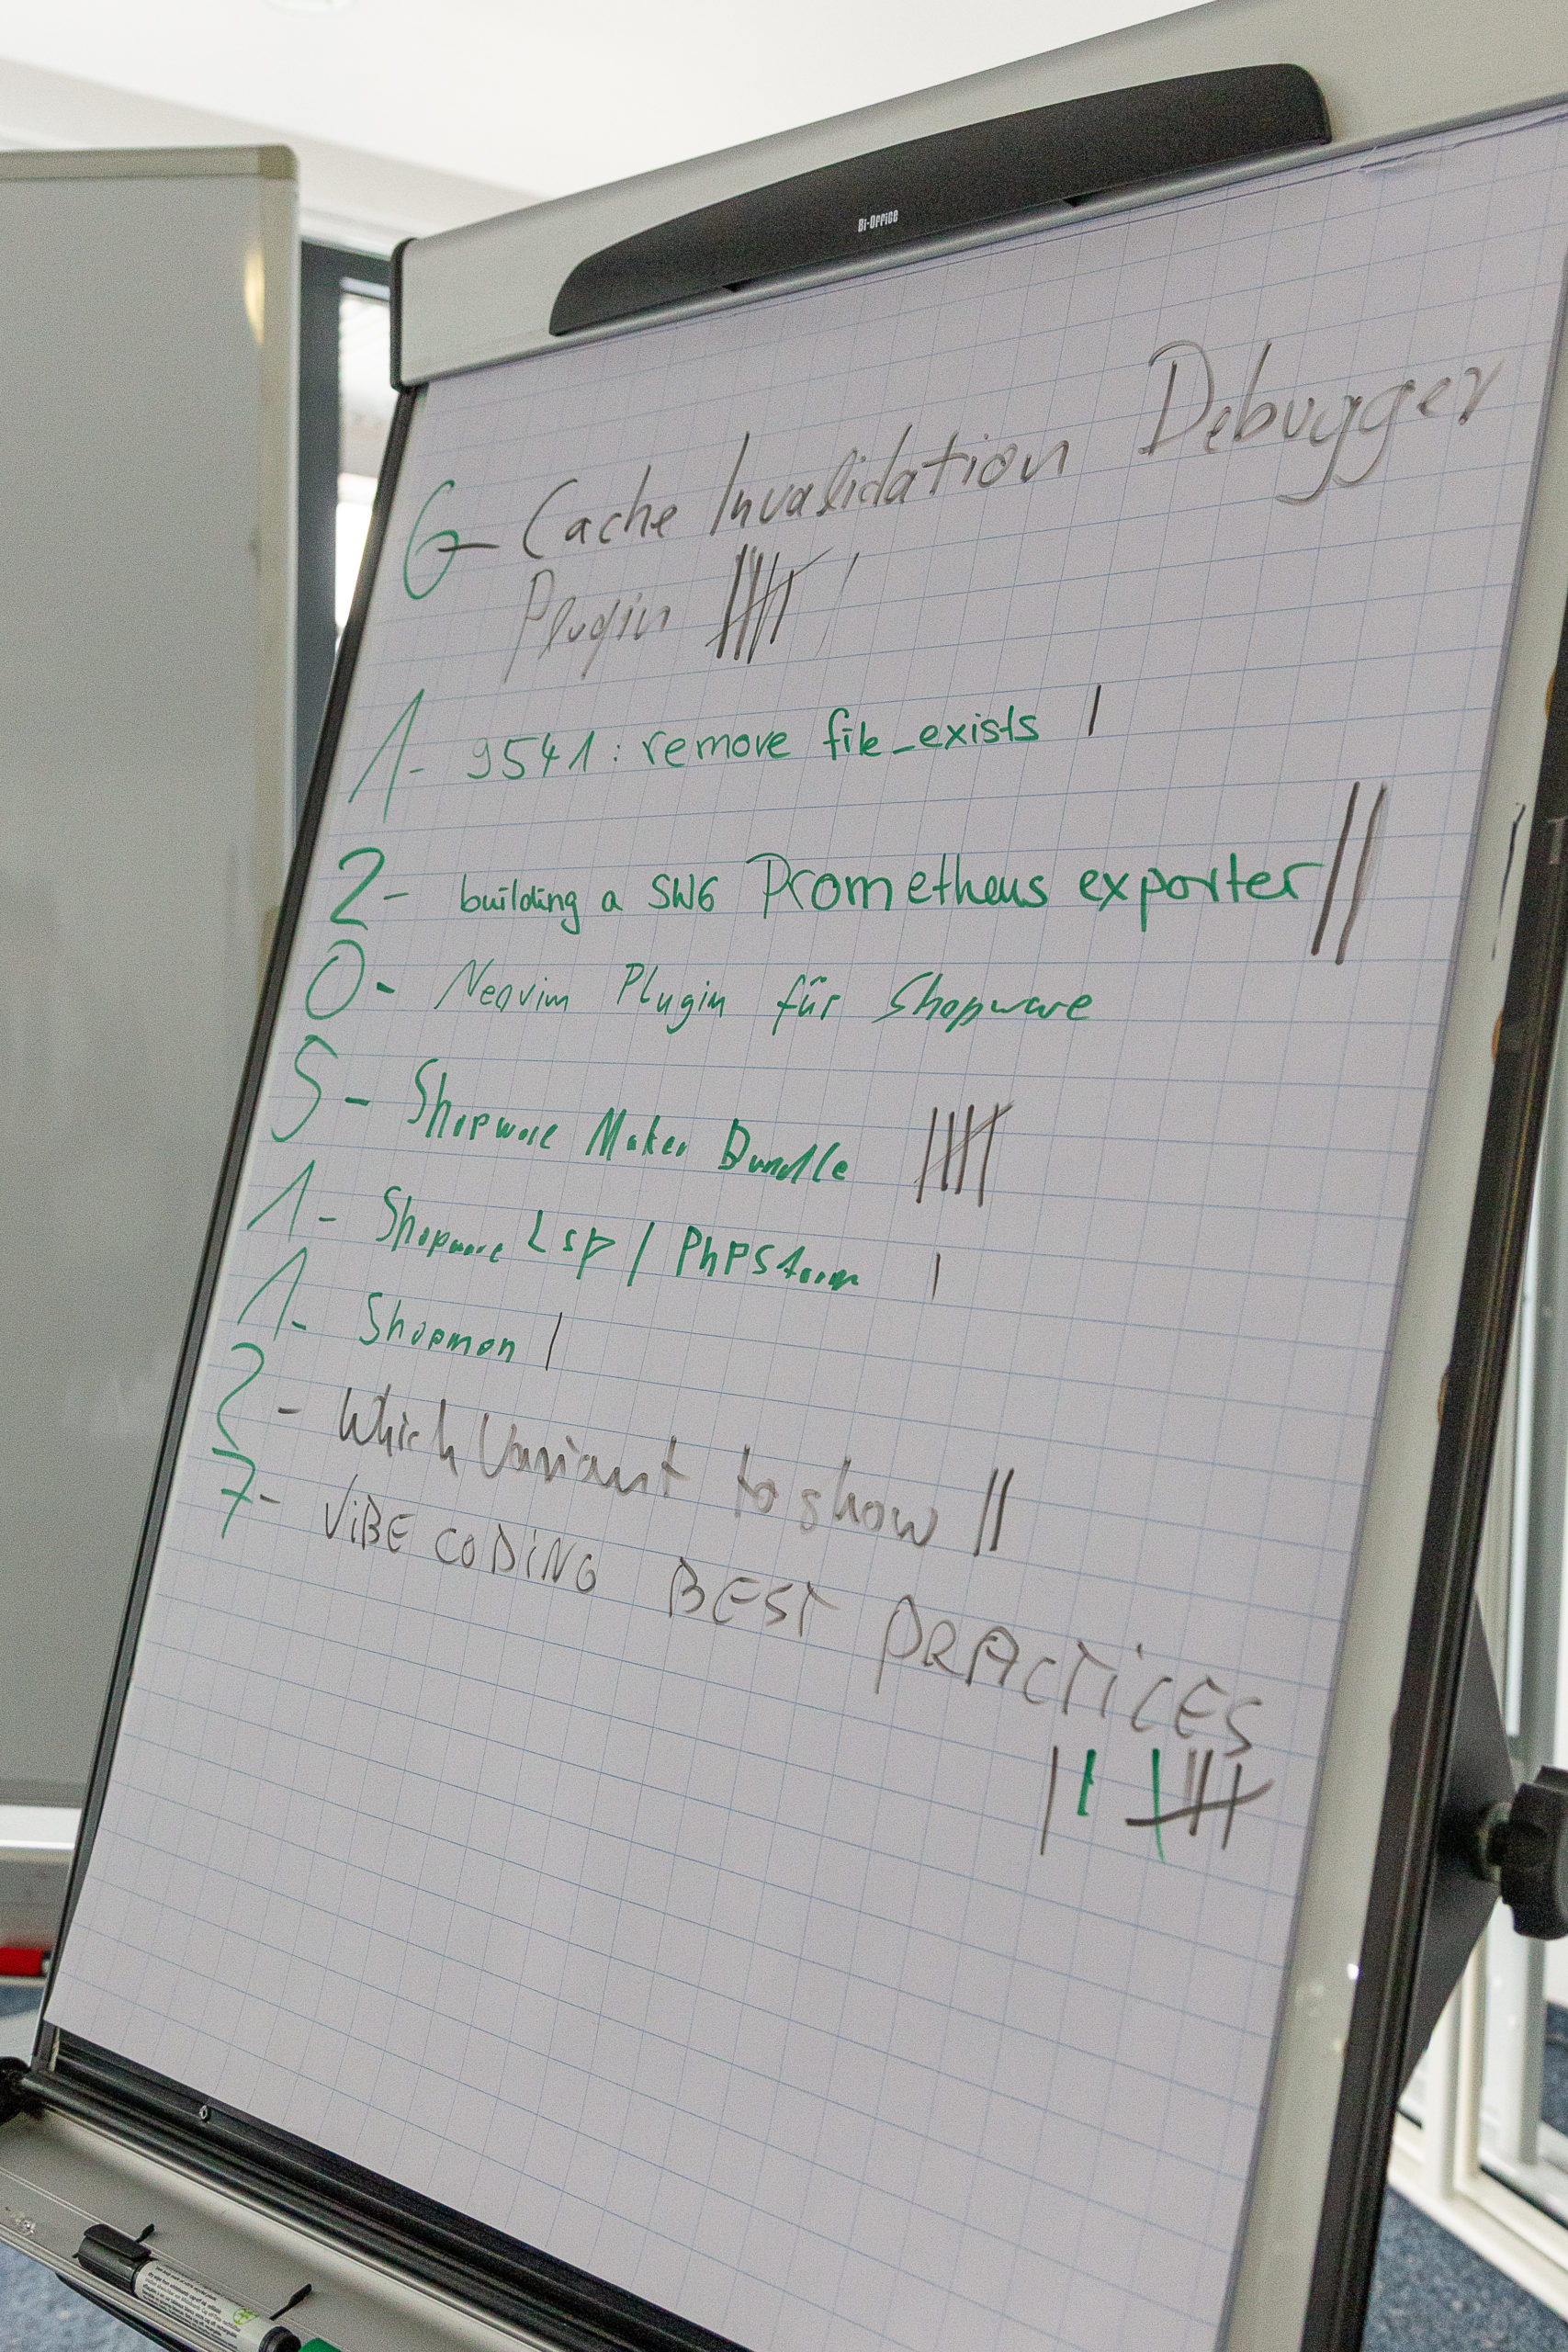 Bi-Office
6 - Cache Invalidation Debugger
Plugin
1 - 9541: remove file_exists
2 - building a SW6 Prometheus exporter
0 - Neovim Plugin für Shopware
5 - Shopware Maker Bundle
1 - Shopware LSP / PhPStorm
1 - Shopmon
2 - Which Variant to show
7 - ViBE CODiNG BEST PRACTiCES